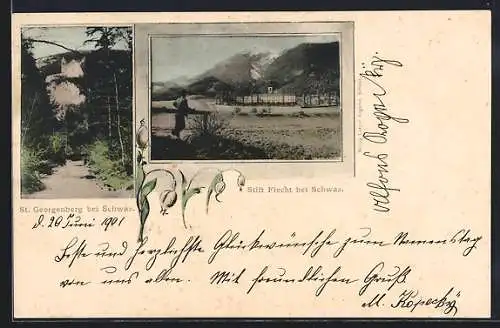 St. Georgenberg bei Schwaz.
Stift Fiecht bei Schwaz.
d. 20 Juni 1901
Beste und herzlichste Glückwünsche zum Namenstag
von uns allen. Mit freundlichen Gruß.
M. Kopecky
Alfons